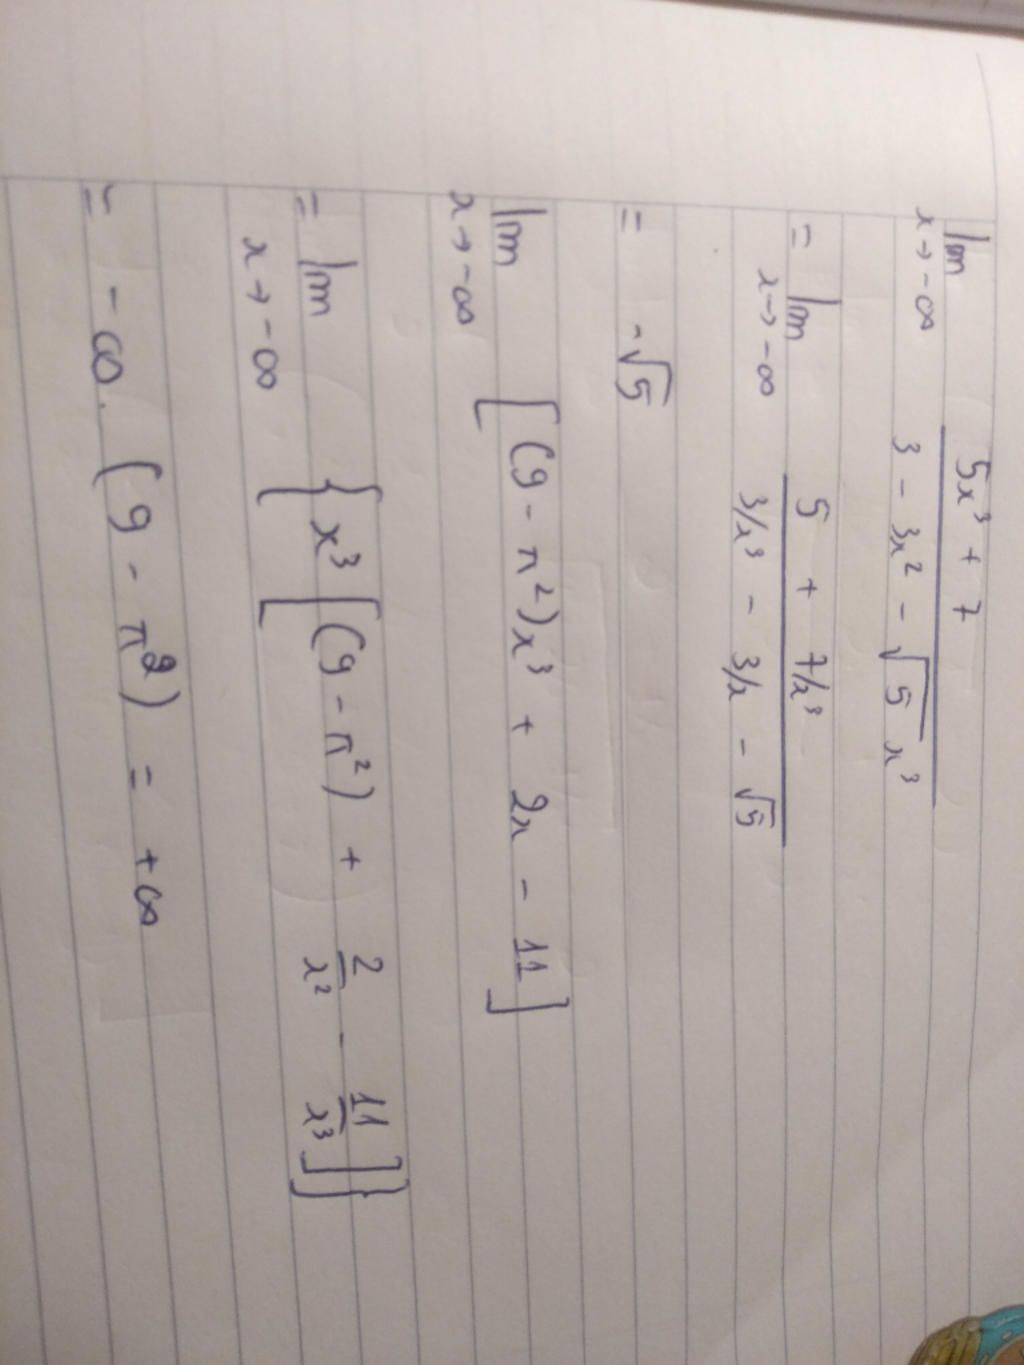 lim 5x³ + 7
x → -∞ 3 - 3x² - √5 x³
= lim 5 + 7/x³
x → -∞ 3/x³ - 3/x - √5
= -√5
lim [(9 - π²)x³ + 2x - 11]
x → -∞
= lim {x³ [(9 - π²) + 2/x² - 11/x³]}
x → -∞
= -∞. (9 - π²) = +∞